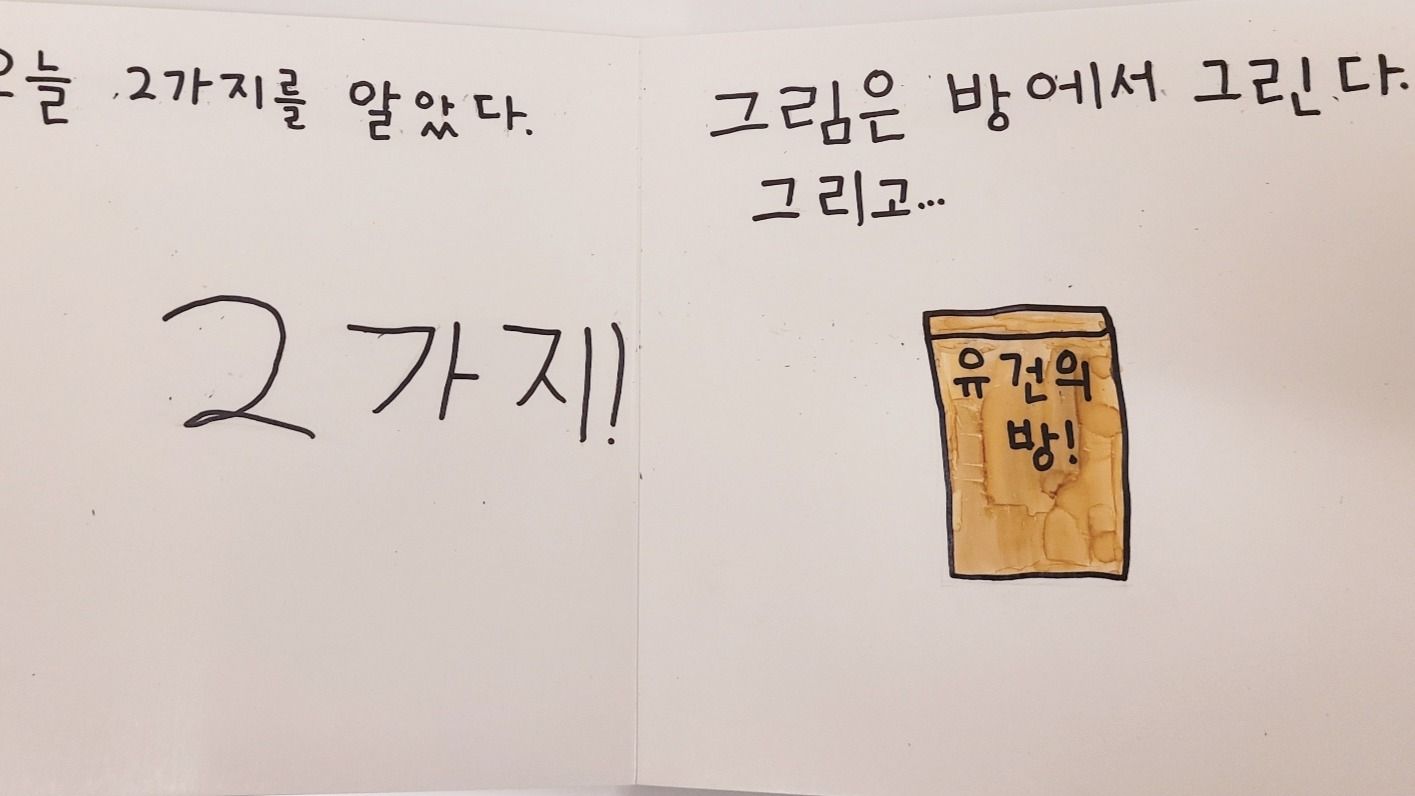 오늘 2가지를 알았다.
2가지!
그림은 방에서 그린다.
그리고...
유건의
방!